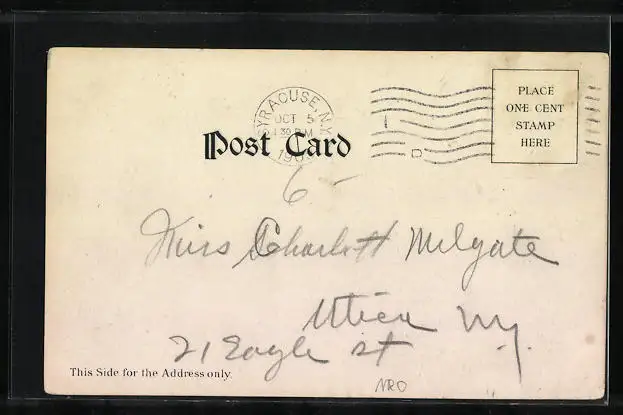 SYRACUSE, N.Y.
OCT 5
30 PM
190
PLACE
ONE CENT
STAMP
HERE
D
Post Card
6-
Miss Charlott Milgate
Utica NY.
21 Eagle St
This Side for the Address only.
NRO